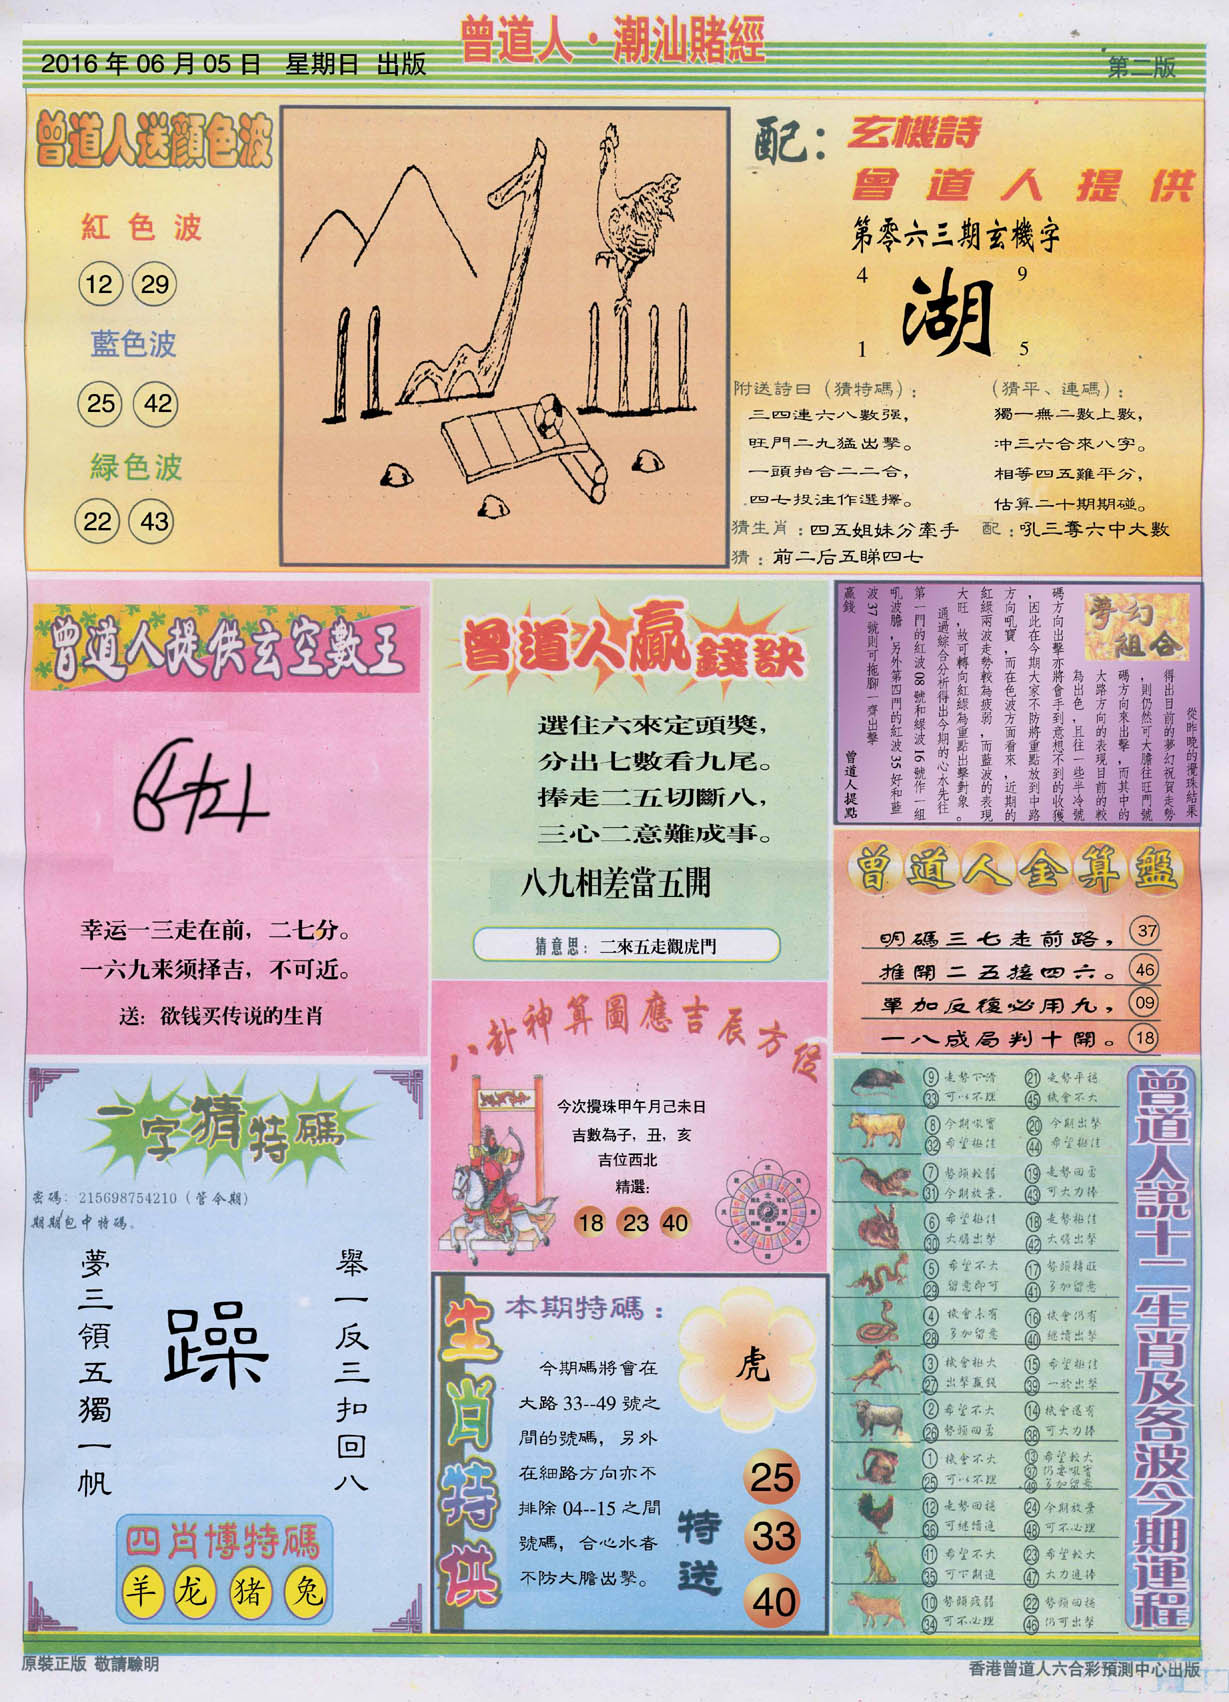 曾道人·潮汕賭經
2016年06月05日 星期日 出版
第二版
曾道人送顏色波
紅色波
12 29
藍色波
25 42
緑色波
22 43
配：玄機詩
曾道人提供
第零六三期玄機字
4 9
湖
1 5
附送詩日（猜特碼）：
三四連六八數强，
旺門二九猛出擊。
一頭拍合二二合，
四七投注作選擇。
（猜平、連碼）：
獨一無二數上數，
冲三六合來八字。
相等四五難平分，
估算二十期期碰。
猜生肖：四五姐妹分牽手
配：吼三奪六中大數
猜：前二后五睇四七
曾道人提供玄空數王
幸运一三走在前，二七分。
一六九来须择吉，不可近。
送：欲钱买传说的生肖
曾道人贏錢訣
選住六來定頭獎，
分出七數看九尾。
捧走二五切斷八，
三心二意難成事。
八九相差當五開
猜意思：二來五走觀虎門
夢幻組合
從昨晚的攪珠結果
得出目前的夢幻祝賀走勢
，則仍然可大膽往旺門號
碼方向來出擊，而其中的
大路方向的表現目前的較
為出色，且往一些半冷號
碼方向出擊亦將會手到意想不到的收獲
，因此在今期大家不防將重點放到中路
方向吼寶，而在色波方面看來，近期的
紅綠兩波走勢較為疲弱，而藍波的表現
大旺，故可轉向紅綠為重點出擊對象。
通過綜合分析得出今期的心水先往
第一門的紅波08號和緑波16號作一組
吼波膽，另外第四門的紅波35好和藍
波37號則可拖腳一齊出擊
贏錢
曾道人提點
曾道人金算盤
明碼三七走前路， 37
推開二五接四六。 46
單加反復必用九， 09
一八成局判十開。 18
八卦神算圖應吉辰方位
今次攪珠甲午月己未日
吉數為子，丑，亥
吉位西北
精選：
18 23 40
一字猜特碼
密碼：215698754210（管令期）
期期包中特碼。
舉一反三扣回八
躁
夢三領五獨一帆
四肖博特碼
羊 龙 猪 兔
生肖特供
本期特碼：
虎
今期碼將會在
大路33--49號之
間的號碼，另外
在細路方向亦不
排除04--15之間
號碼，合心水者
不防大膽出擊。
特送
25
33
40
曾道人說十二生肖及各波今期運程
⑨ 走勢下滑 ㉑ 走勢平穩
㉝ 可以不理 ㊺ 機會不大
⑧ 今期吸寶 ⑳ 今期出擊
㉜ 希望極佳 ㊹ 希望極佳
⑦ 勢頭較弱 ⑲ 走勢回勇
㉛ 今期放棄. ㊸ 可大力捧
⑥ 希望極佳 ⑱ 走勢極佳
㉚ 大膽出擊 ㊷ 大膽出擊
⑤ 希望不大 ⑰ 勢頭轉旺
㉙ 留意即可 ㊶ 多加留意
④ 機會未有 ⑯ 機會仍有
㉘ 多加留意 ㊵ 繼續出擊
③ 機會極大 ⑮ 希望極佳
㉗ 出擊贏錢 ㊴ 一於出擊
② 希望不大 ⑭ 機會還有
㉖ 勢頭回勇 ㊳ 可大力捧
① 機會不大 ⑬ 希望較大
㉕ 可以不理 ㊲ 仍要吸寶
㊾ 多加留意
⑫ 走勢回穩 ㉔ 今期放棄
㊱ 可繼續追 ㊽ 可不必理
⑪ 希望不大 ㉓ 希望較大
㉟ 可下期追 ㊼ 大力追捧
⑩ 勢頭疲弱 ㉒ 勢頭回穩
㉞ 可不必理 ㊻ 仍可出擊
原裝正版 敬請驗明
香港曾道人六合彩預測中心出版